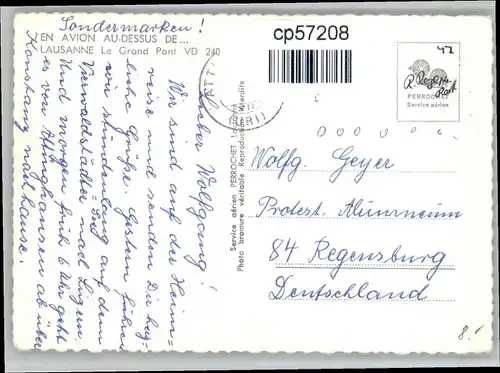 Sondermarken!
EN AVION AU-DESSUS DE...
LAUSANNE Le Grand Pont VD 240
cp57208
Lieber Wolfgang!
Wir sind auf der Heim-
reise und senden Dir herz-
liche Grüße. Gestern fuhren
wir stundenlang auf dem
Vierwaldstädter-See nach Luzern.
Und morgen früh 6 Uhr geht
es von Attinghausen ab über
Konstanz nach hause.
Service aérien PERROCHET
Photo bromure véritable Reproduction interdite
ATT
(URI)
47
PERROCHET
Service aérien
Wolfg. Geyer
Protest. Alumneum
84 Regensburg
Deutschland
8.-